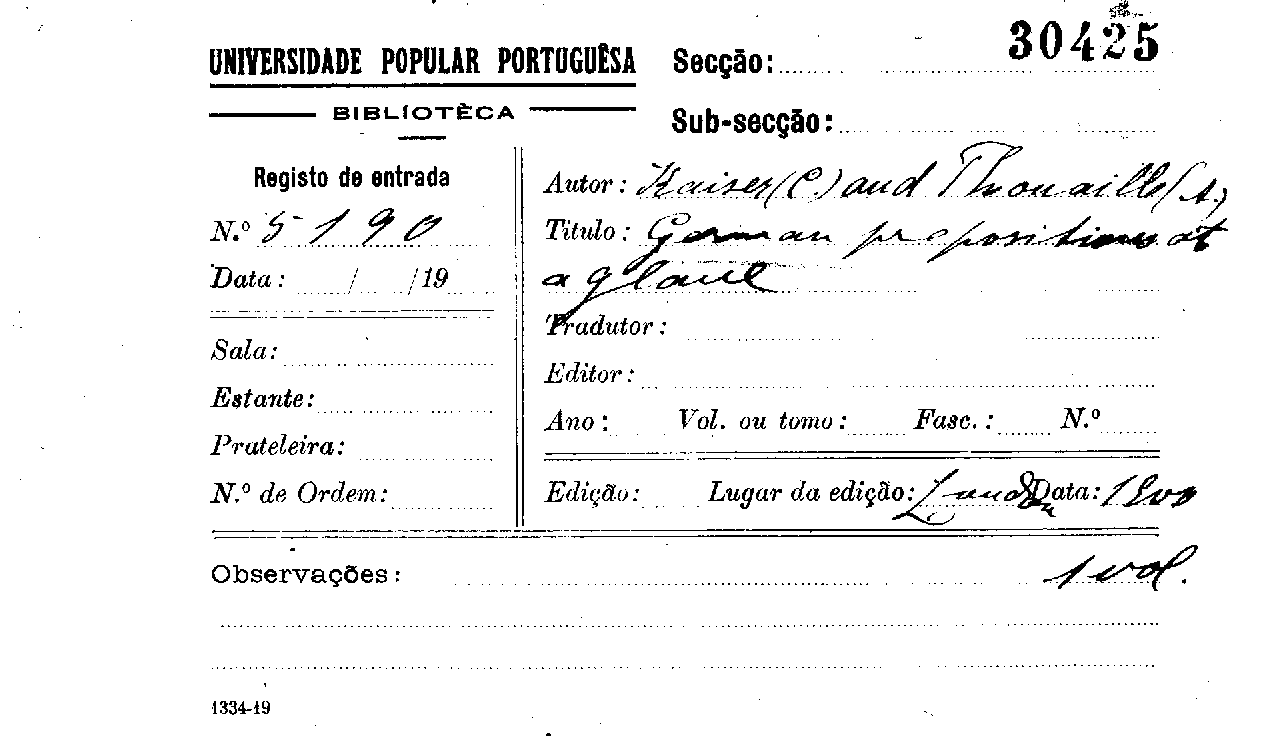 30425
UNIVERSIDADE POPULAR PORTUGUÊSA
BIBLIOTÈCA
Secção:
Sub-secção:
Registo de entrada
N.º 5190
Data: / /19
Sala:
Estante:
Prateleira:
N.º de Ordem:
Autor: Kaiser (C) and Thouaille (A.)
Titulo: German prepositions at
a glance
Tradutor:
Editor:
Ano: Vol. ou tomo: Fasc.: N.º
Edição: Lugar da edição: London Data: 1900
Observações: 1 vol.
1334-19